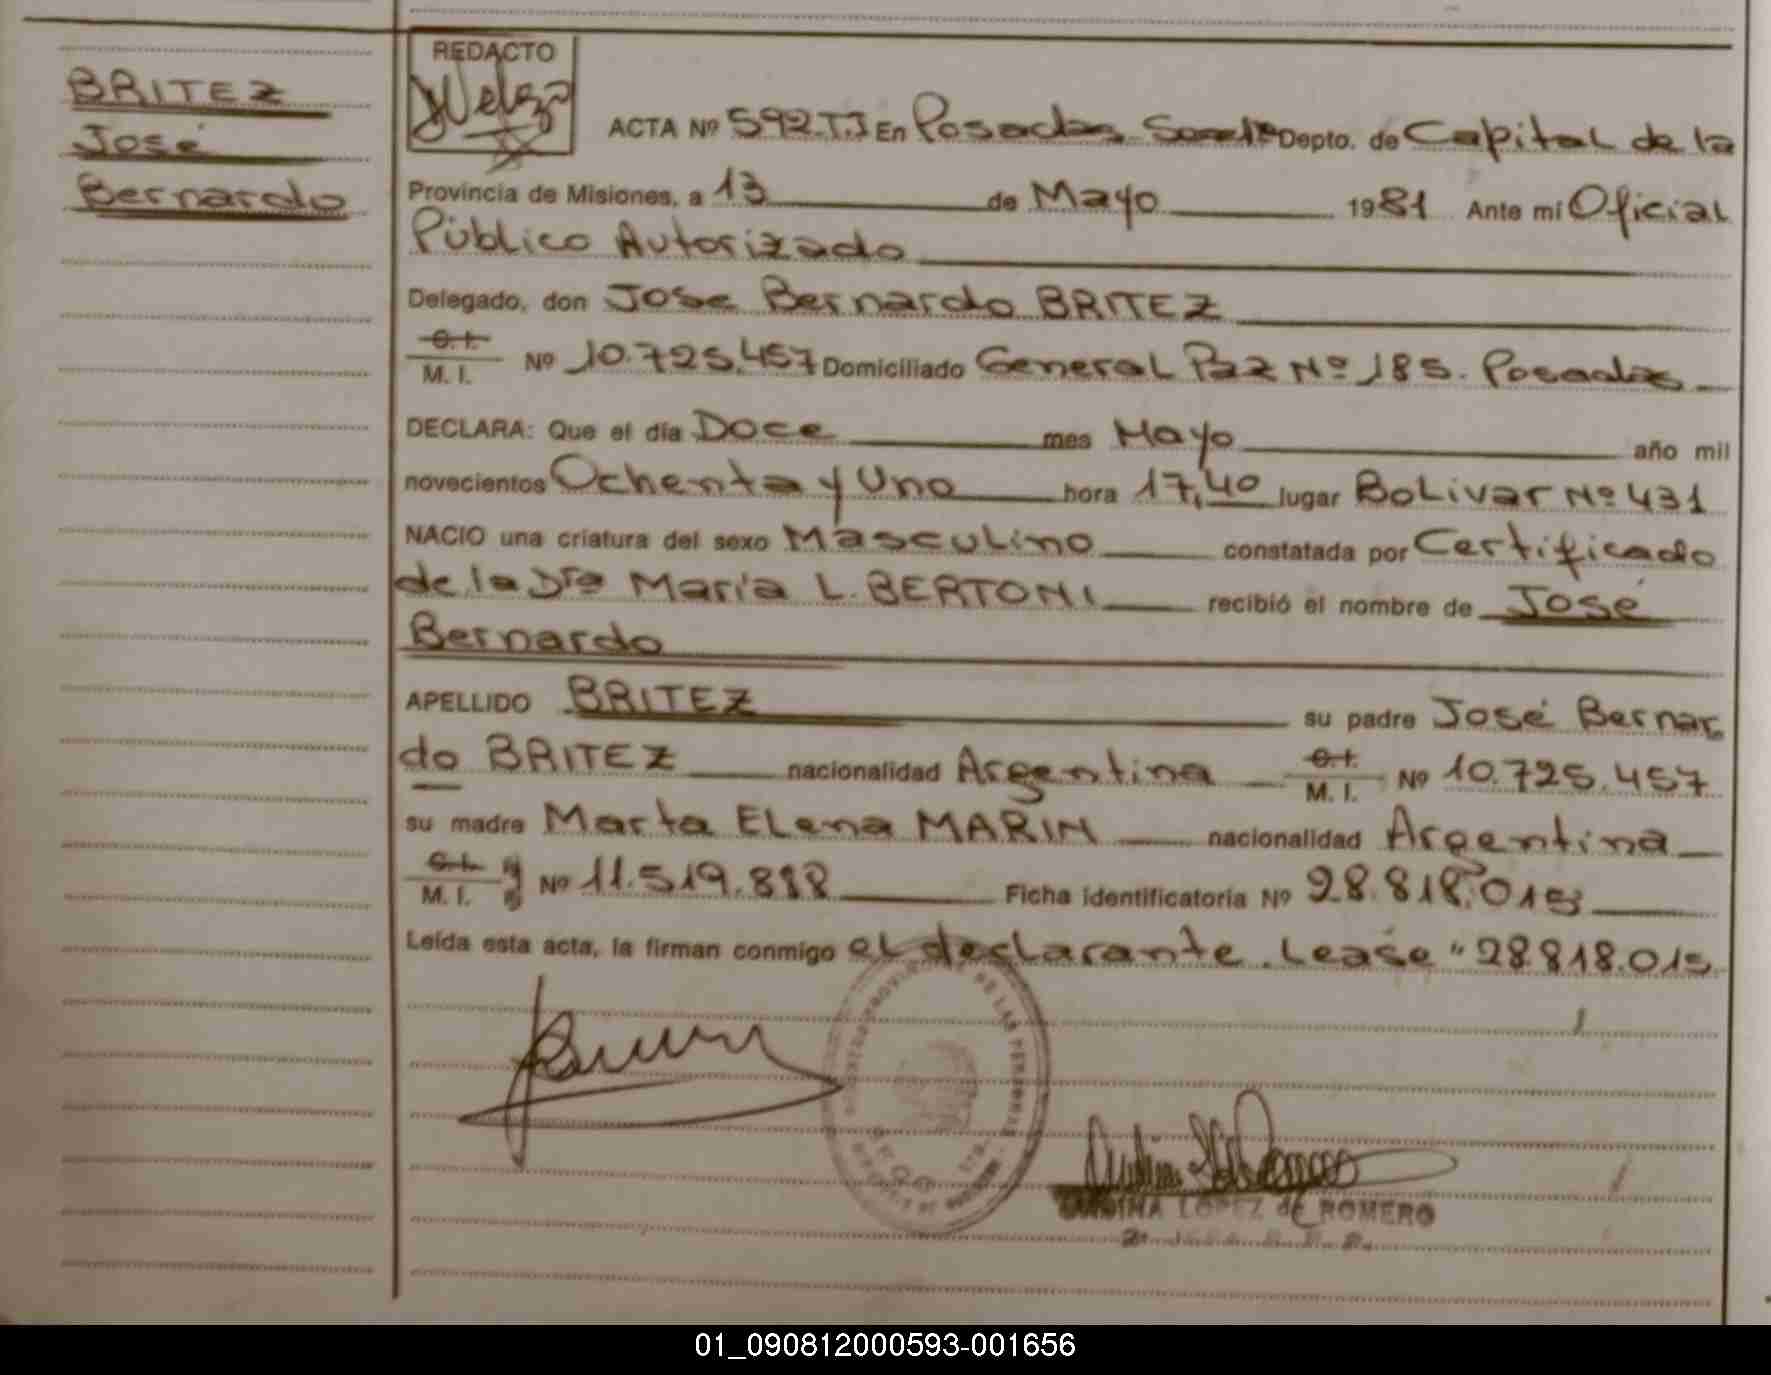 BRITEZ
José
Bernardo
REDACTO
ACTA Nº 592.T.I En Posadas Depto. de Capital de la
Provincia de Misiones, a 13 de Mayo 1981 Ante mí Oficial
Público Autorizado
Delegado, don Jose Bernardo BRITEZ
C.I.
M. I. Nº 10.725.457 Domiciliado General Paz Nº 185. Posadas
DECLARA: Que el día Doce mes Mayo año mil
novecientos Ochenta y Uno hora 17,40 lugar BoLivar Nº 431
NACIO una criatura del sexo Masculino constatada por Certificado
de la Dra María L. BERTONI recibió el nombre de José
Bernardo
APELLIDO BRITEZ su padre José Bernar
do BRITEZ nacionalidad Argentina C.I.
M. I. Nº 10.725.457
su madre Marta ELena MARIN nacionalidad Argentina
C.I.
M. I. Nº 11.519.888 Ficha identificatoria Nº 28.818.015
Leída esta acta, la firman conmigo eL declarante. Lease "28.818.015
DE LAS PERSONAS
LOPEZ de ROMERO
01_090812000593-001656